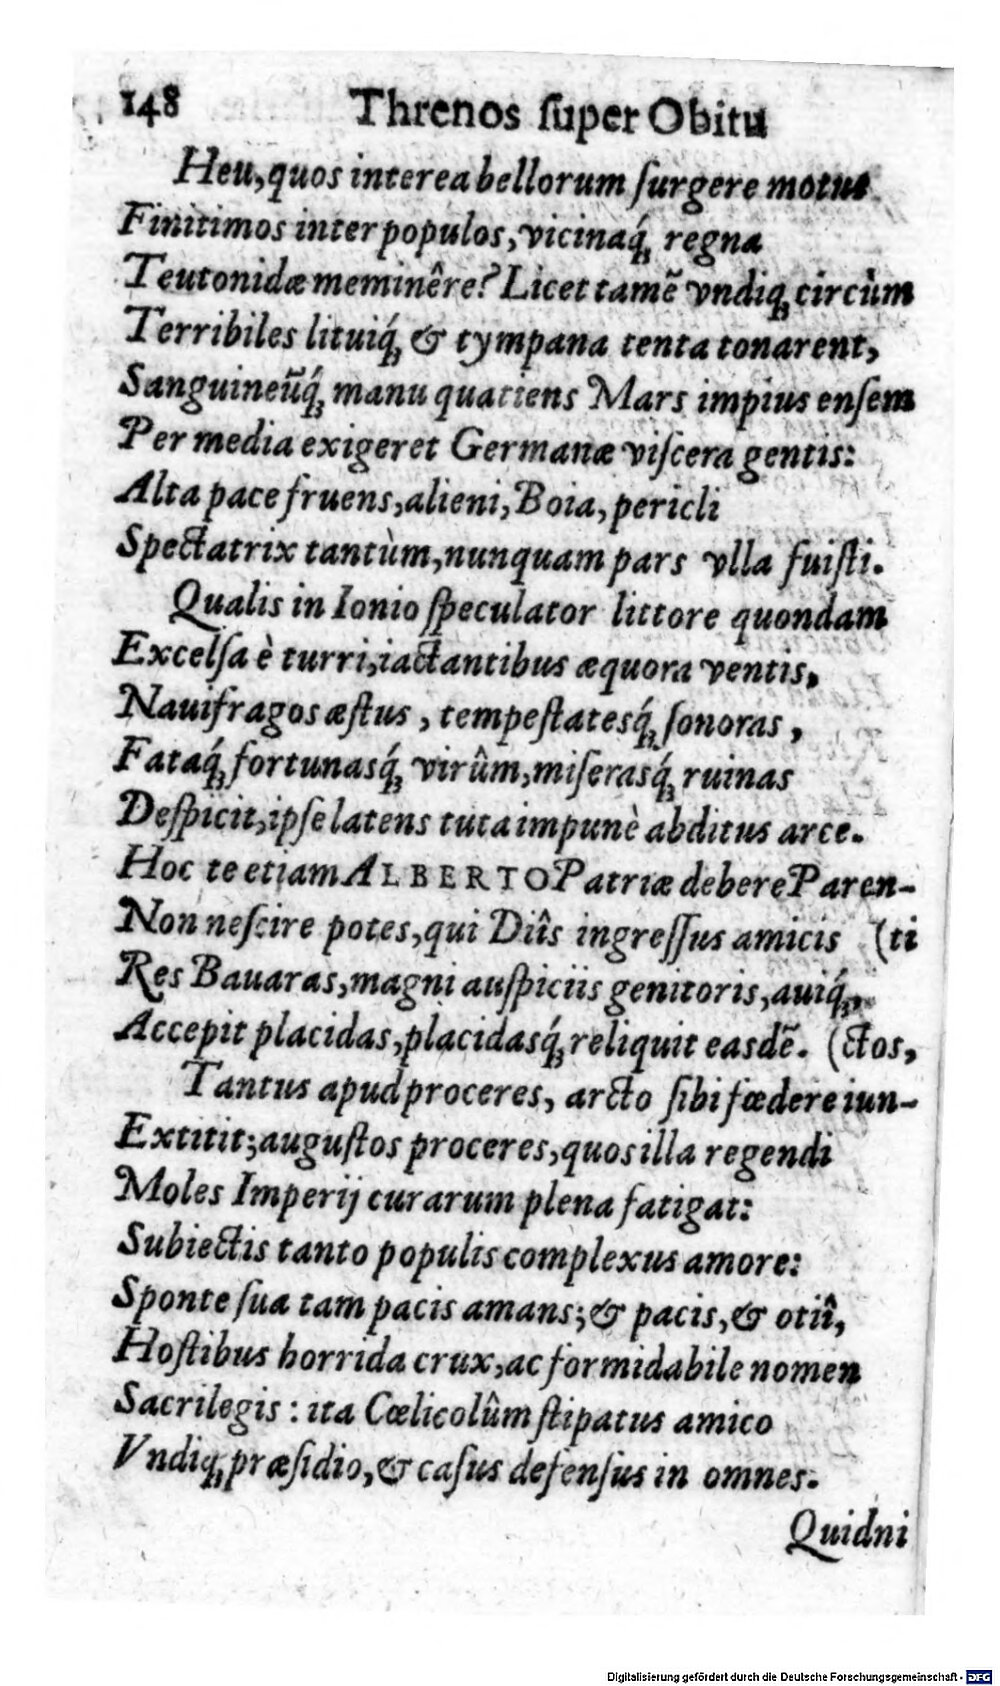 148 Threnos ſuper Obitu
Heu, quos interea bellorum ſurgere motus
Finitimos inter populos, vicinaq́ꝫ regna
Teutonidæ meminêre? Licet tamẽ vndiqꝫ circùm
Terribiles lituiq́ꝫ & tympana tenta tonarent,
Sanguineũq́ꝫ manu quatiens Mars impius enſem
Per media exigeret Germanæ viſcera gentis:
Alta pace fruens, alieni, Boia, pericli
Spectatrix tantùm, nunquam pars vlla fuiſti.
Qualis in Ionio ſpeculator littore quondam
Excelſa è turri, iactantibus æquora ventis,
Nauifragos æſtus, tempeſtatesq́ꝫ ſonoras,
Fataq́ꝫ fortunasq́ꝫ virûm, miſerasq́ꝫ ruinas
Deſpicit, ipſe latens tuta impunè abditus arce.
Hoc te etiam ALBERTO Patriæ debere Paren-
Non neſcire potes, qui Dîis ingreſſus amicis (ti
Res Bauaras, magni auſpiciis genitoris, auiq́ꝫ,
Accepit placidas, placidasq́ꝫ reliquit easdẽ. (ctos,
Tantus apud proceres, arcto ſibi fœdere iun-
Extitit; auguſtos proceres, quos illa regendi
Moles Imperij curarum plena fatigat:
Subiectis tanto populis complexus amore:
Sponte ſua tam pacis amans; & pacis, & otiî,
Hoſtibus horrida crux, ac formidabile nomen
Sacrilegis: ita Cœlicolûm ſtipatus amico
Vndiqꝫ præſidio, & caſus defenſus in omnes.
Quidni
Digitalisierung gefördert durch die Deutsche Forschungsgemeinschaft - DFG